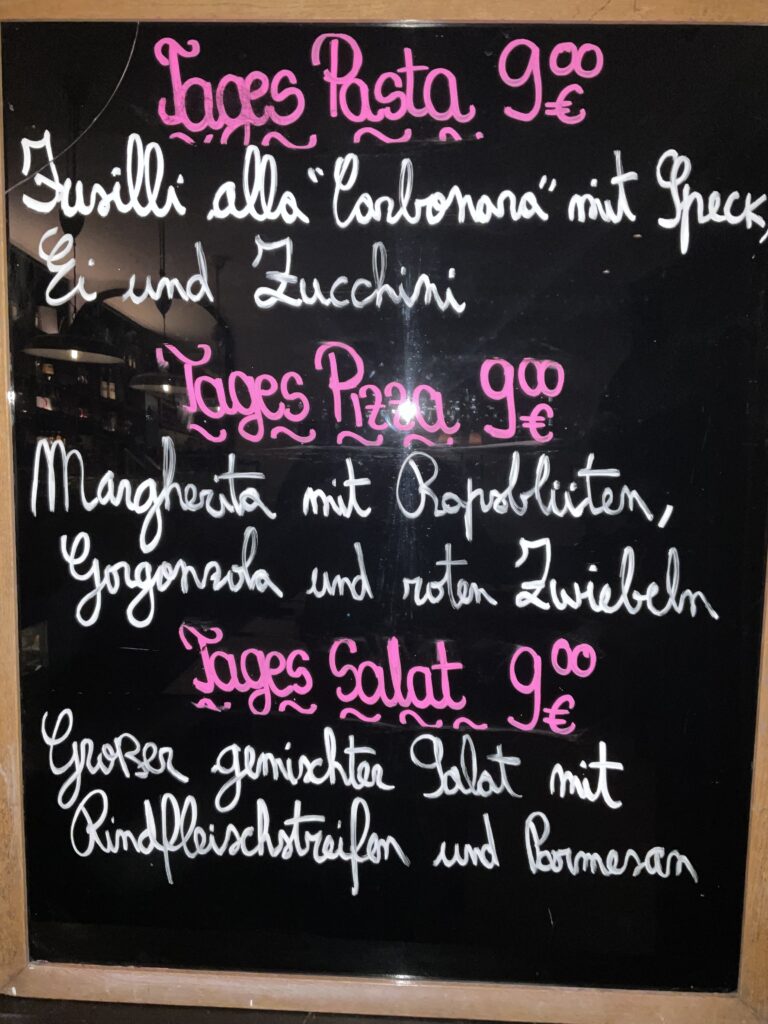 Tages Pasta 9⁰⁰ €
Fusilli alla "Carbonara" mit Speck,
Ei und Zucchini
Tages Pizza 9⁰⁰ €
Margherita mit Rapsblüten,
Gorgonzola und roten Zwiebeln
Tages Salat 9⁰⁰ €
Großer gemischter Salat mit
Rindfleischstreifen und Parmesan